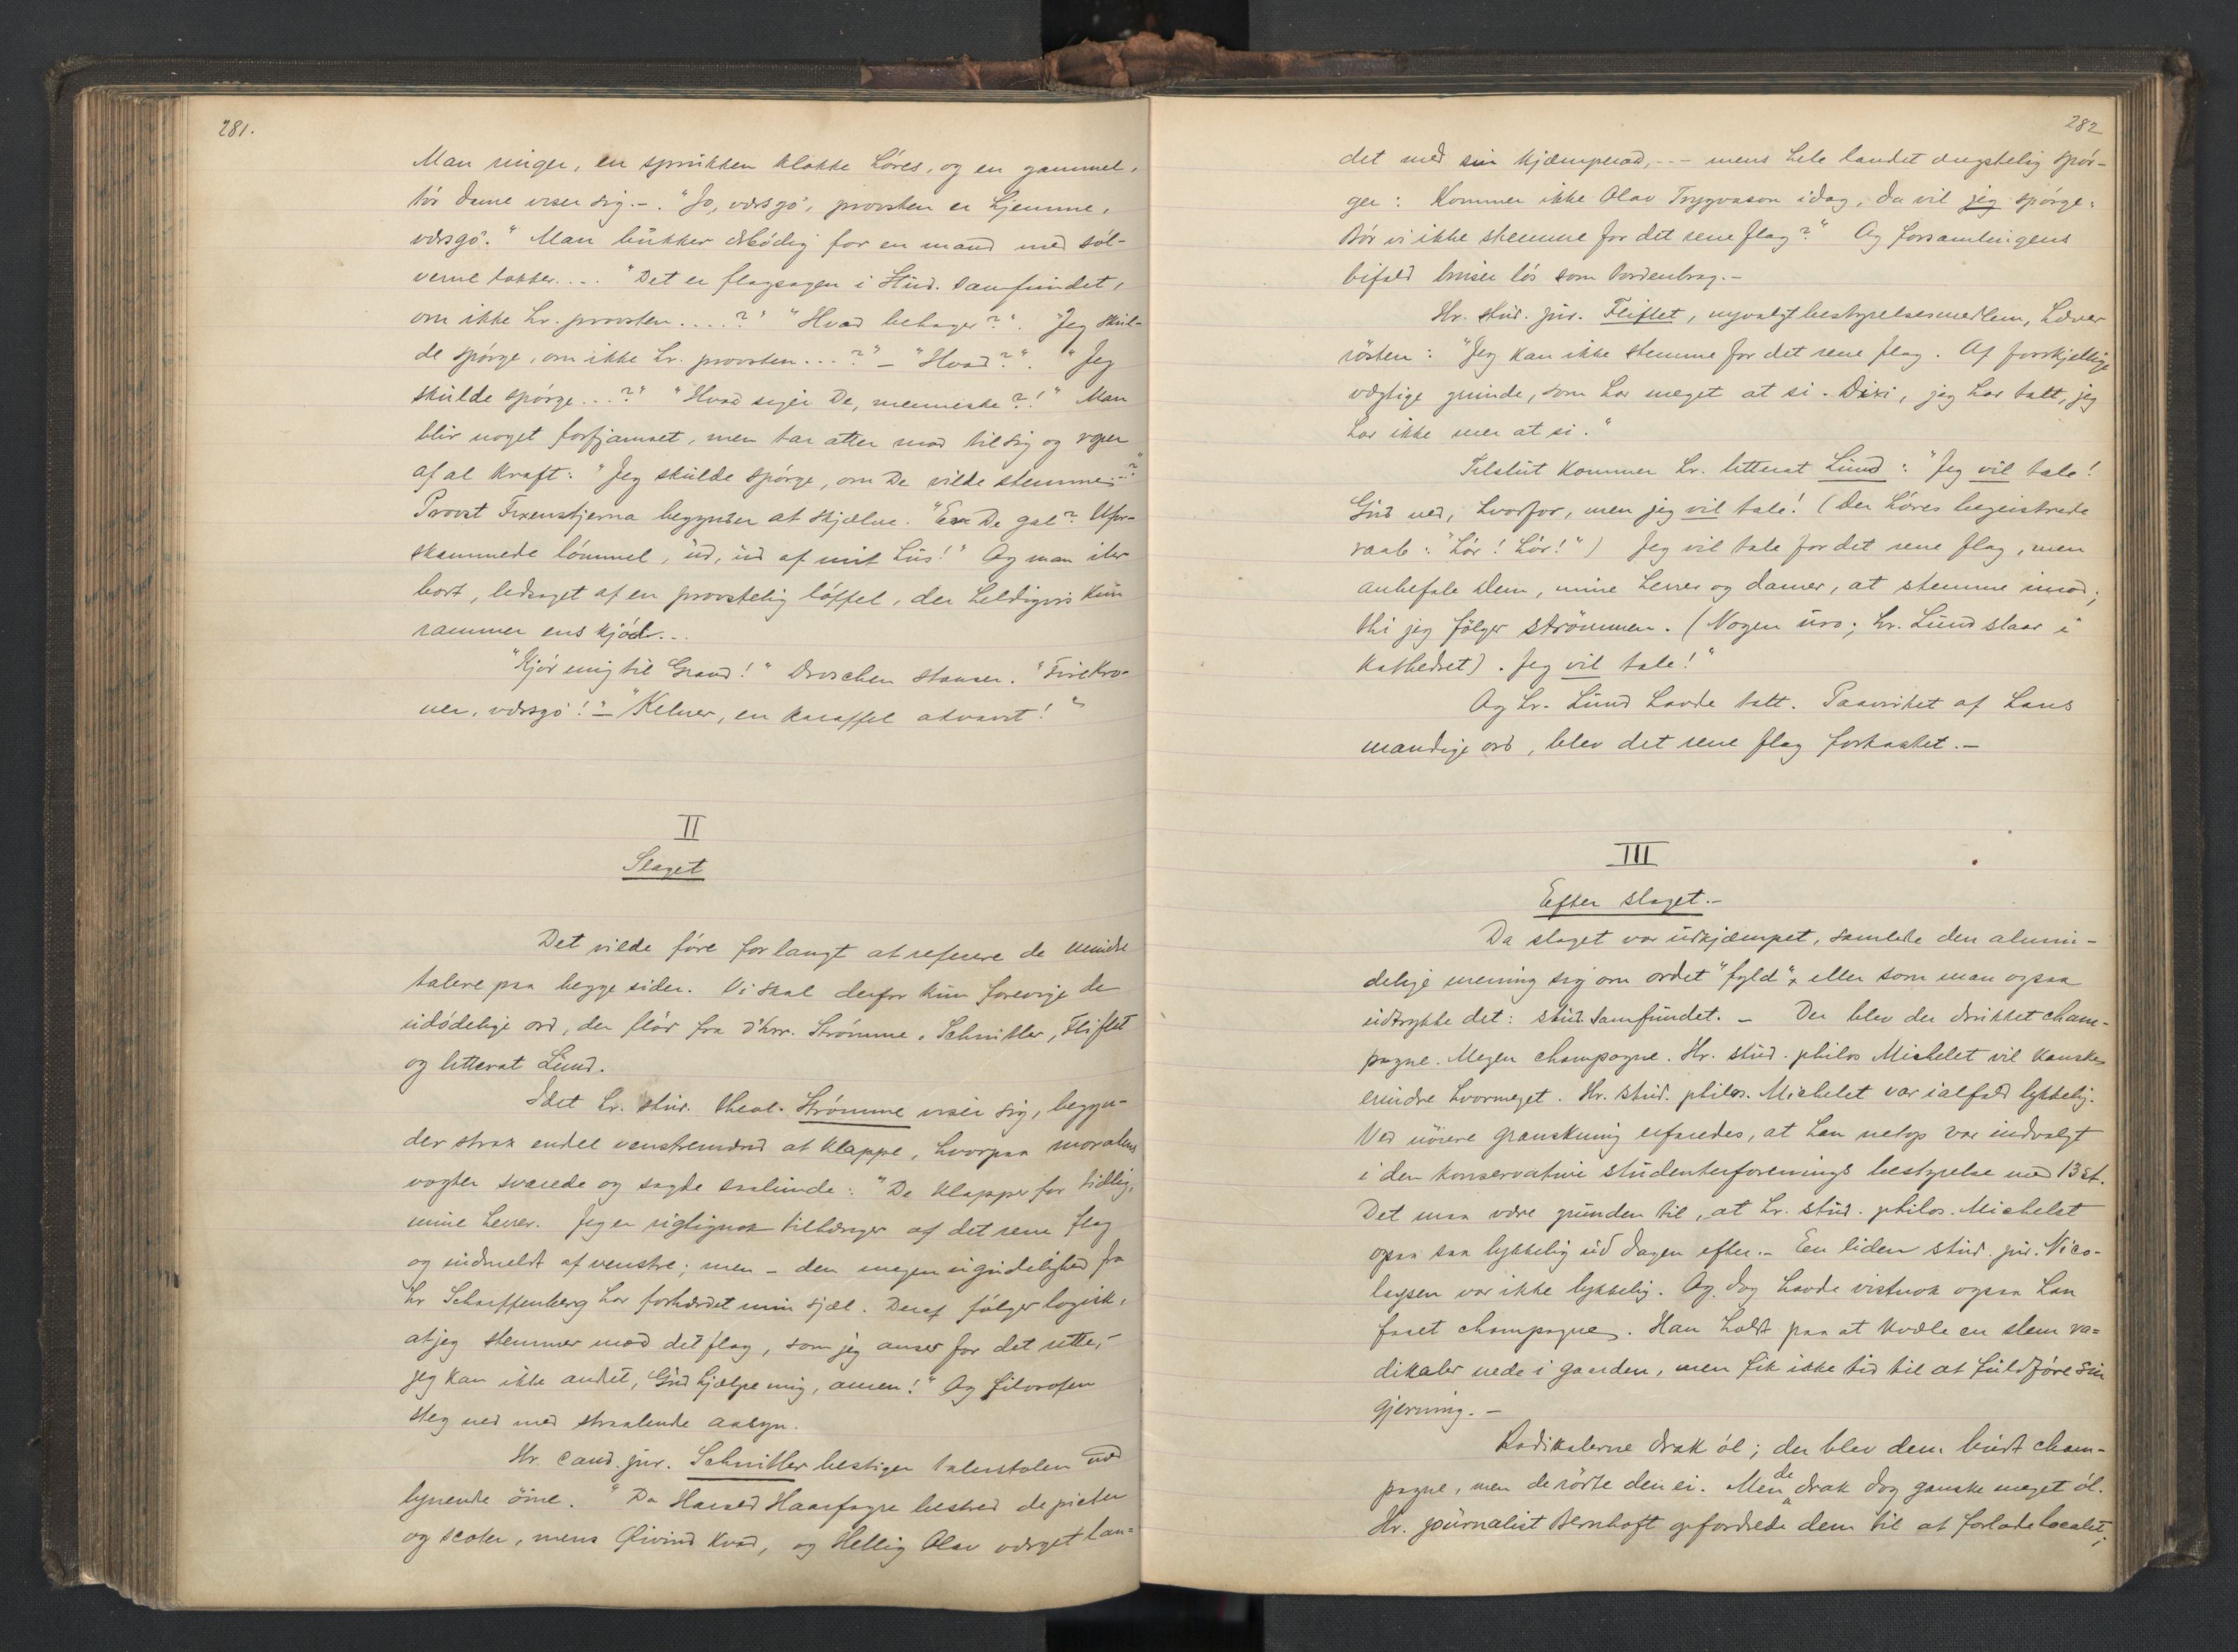 281.
Man ringer, en sprukken klokke høres, og en gammel,
tør dame viser sig. –. "Jo, værsgo', provsten er hjemme,
værsgo'." Man bukker ærbødig for en mand med søl-
verne lokker. . . . "Det er flagsagen i Stud. Samfundet,
om ikke hr. provsten. . . . ?" "Hvad behager?". "Jeg skul-
de spørge, om ikke hr. provsten. . . ?" – "Hvad?". "Jeg
skulde spørge. . . ?" "Hvad siger De, menneske?!" Man
blir noget forfjamset, men tar atter mod til sig og roper
af al kraft: "Jeg skulde spørge, om De vilde stemme. . ?"
Provst Fixenstjerna begynder at skjælve. "Er De gal? Ufor-
skammede lømmel, ud, ud af mit hus!" Og man iler
bort, ledsaget af en provstelig tøffel, der heldigvis kun
rammer ens kjød. . .
"Kjør mig til Grand!" Droschen stanser. "Fire kro-
ner, værsgo'!" – "Kelner, en karaffel akvavit!"
II
Slaget
Det vilde føre for langt at referere de mindre
talere paa begge sider. Vi skal derfor kun forevige de
udødelige ord, der flød fra d'hrr. Strømme, Schnitler, Fliflet
og litterat Lund.
Idet hr. stud. theol. Strømme viser sig, begyn-
der strax endel venstremænd at klappe, hvorpaa moralens
vogter svarede og sagde saalunde: "De klapper for tidlig,
mine herrer. Jeg er rigtignok tilhænger af det rene flag
og indmeldt af venstre; men – den megen ugudelighed fra
hr Scharffenberg har forhærdet min sjæl. Deraf følger logisk,
at jeg stemmer mod det flag, som jeg anser for det rette, –
jeg kan ikke andet, Gud hjælpe mig, amen!" Og filosofen
steg ned med straalende aasyn.
Hr. cand. jur. Schnitler bestiger talerstolen med
lynende öine. "Da Harald Haarfagre bestred de picter
og scoter, mens Øivind kvad, og Hellig Olav værget lan-
282
det med sin kjæmperad, - - – mens hele landet ængstelig spør-
ger: Kommer ikke Olav Trygvason idag, da vil jeg spørge:
Bør vi ikke stemme for det rene flag?" Og forsamlingens
bifald bruser løs som tordenbrag. –
Hr. stud. jur. Fliflet, nyvalgt bestyrelsesmedlem, hæver
rösten: "Jeg kan ikke stemme for det rene flag. Af forskjellige
vægtige grunde, som har meget at si. Dixi, jeg har talt, jeg
har ikke mer at si."
Tilslut kommer hr. litterat Lund: "Jeg vil tale!
Gud ved, hvorfor, men jeg vil tale! (Der høres begeistrede
raab: "Hør! hør!") Jeg vil tale for det rene flag, men
anbefale Dem, mine herrer og damer, at stemme imod;
thi jeg følger strömmen. (Nogen uro; hr. Lund slaar i
kathedret). Jeg vil tale!"
Og hr. Lund havde talt. Paavirket af hans
mandige ord, blev det rene flag forkastet. –
III
Efter slaget. –
Da slaget var udkjæmpet, samlede den almin-
delige mening sig om ordet "fyld", eller som man ogsaa
udtrykte det: stud. Samfundet. – Der blev der drukket cham-
pagne. Megen champagne. Hr. stud. philos Michelet vil kanske
erindre hvormeget. Hr. stud. philos. Michelet var ialfald lykkelig.
Ved nöiere granskning erfaredes, at han netop var indvalgt
i den konservative studenterforenings bestyrelse med 13 st.
Det maa være grunden til, at hr. stud. philos. Michelet
ogsaa saa lykkelig ud dagen efter. – En liden stud. jur. Nico-
laysen var ikke lykkelig. Og dog havde vistnok ogsaa han
faaet champagne. Han holdt paa at kvæle en slem ra-
dikaler nede i gaarden, men fik ikke tid til at fuldføre sin
gjerning. –
Radikalerne drak øl; der blev dem budt cham-
pagne, men de rørte den ei. Men de drak dog ganske meget øl.
Hr. journalist Bernhoft opfordrede dem til at forlade localet;